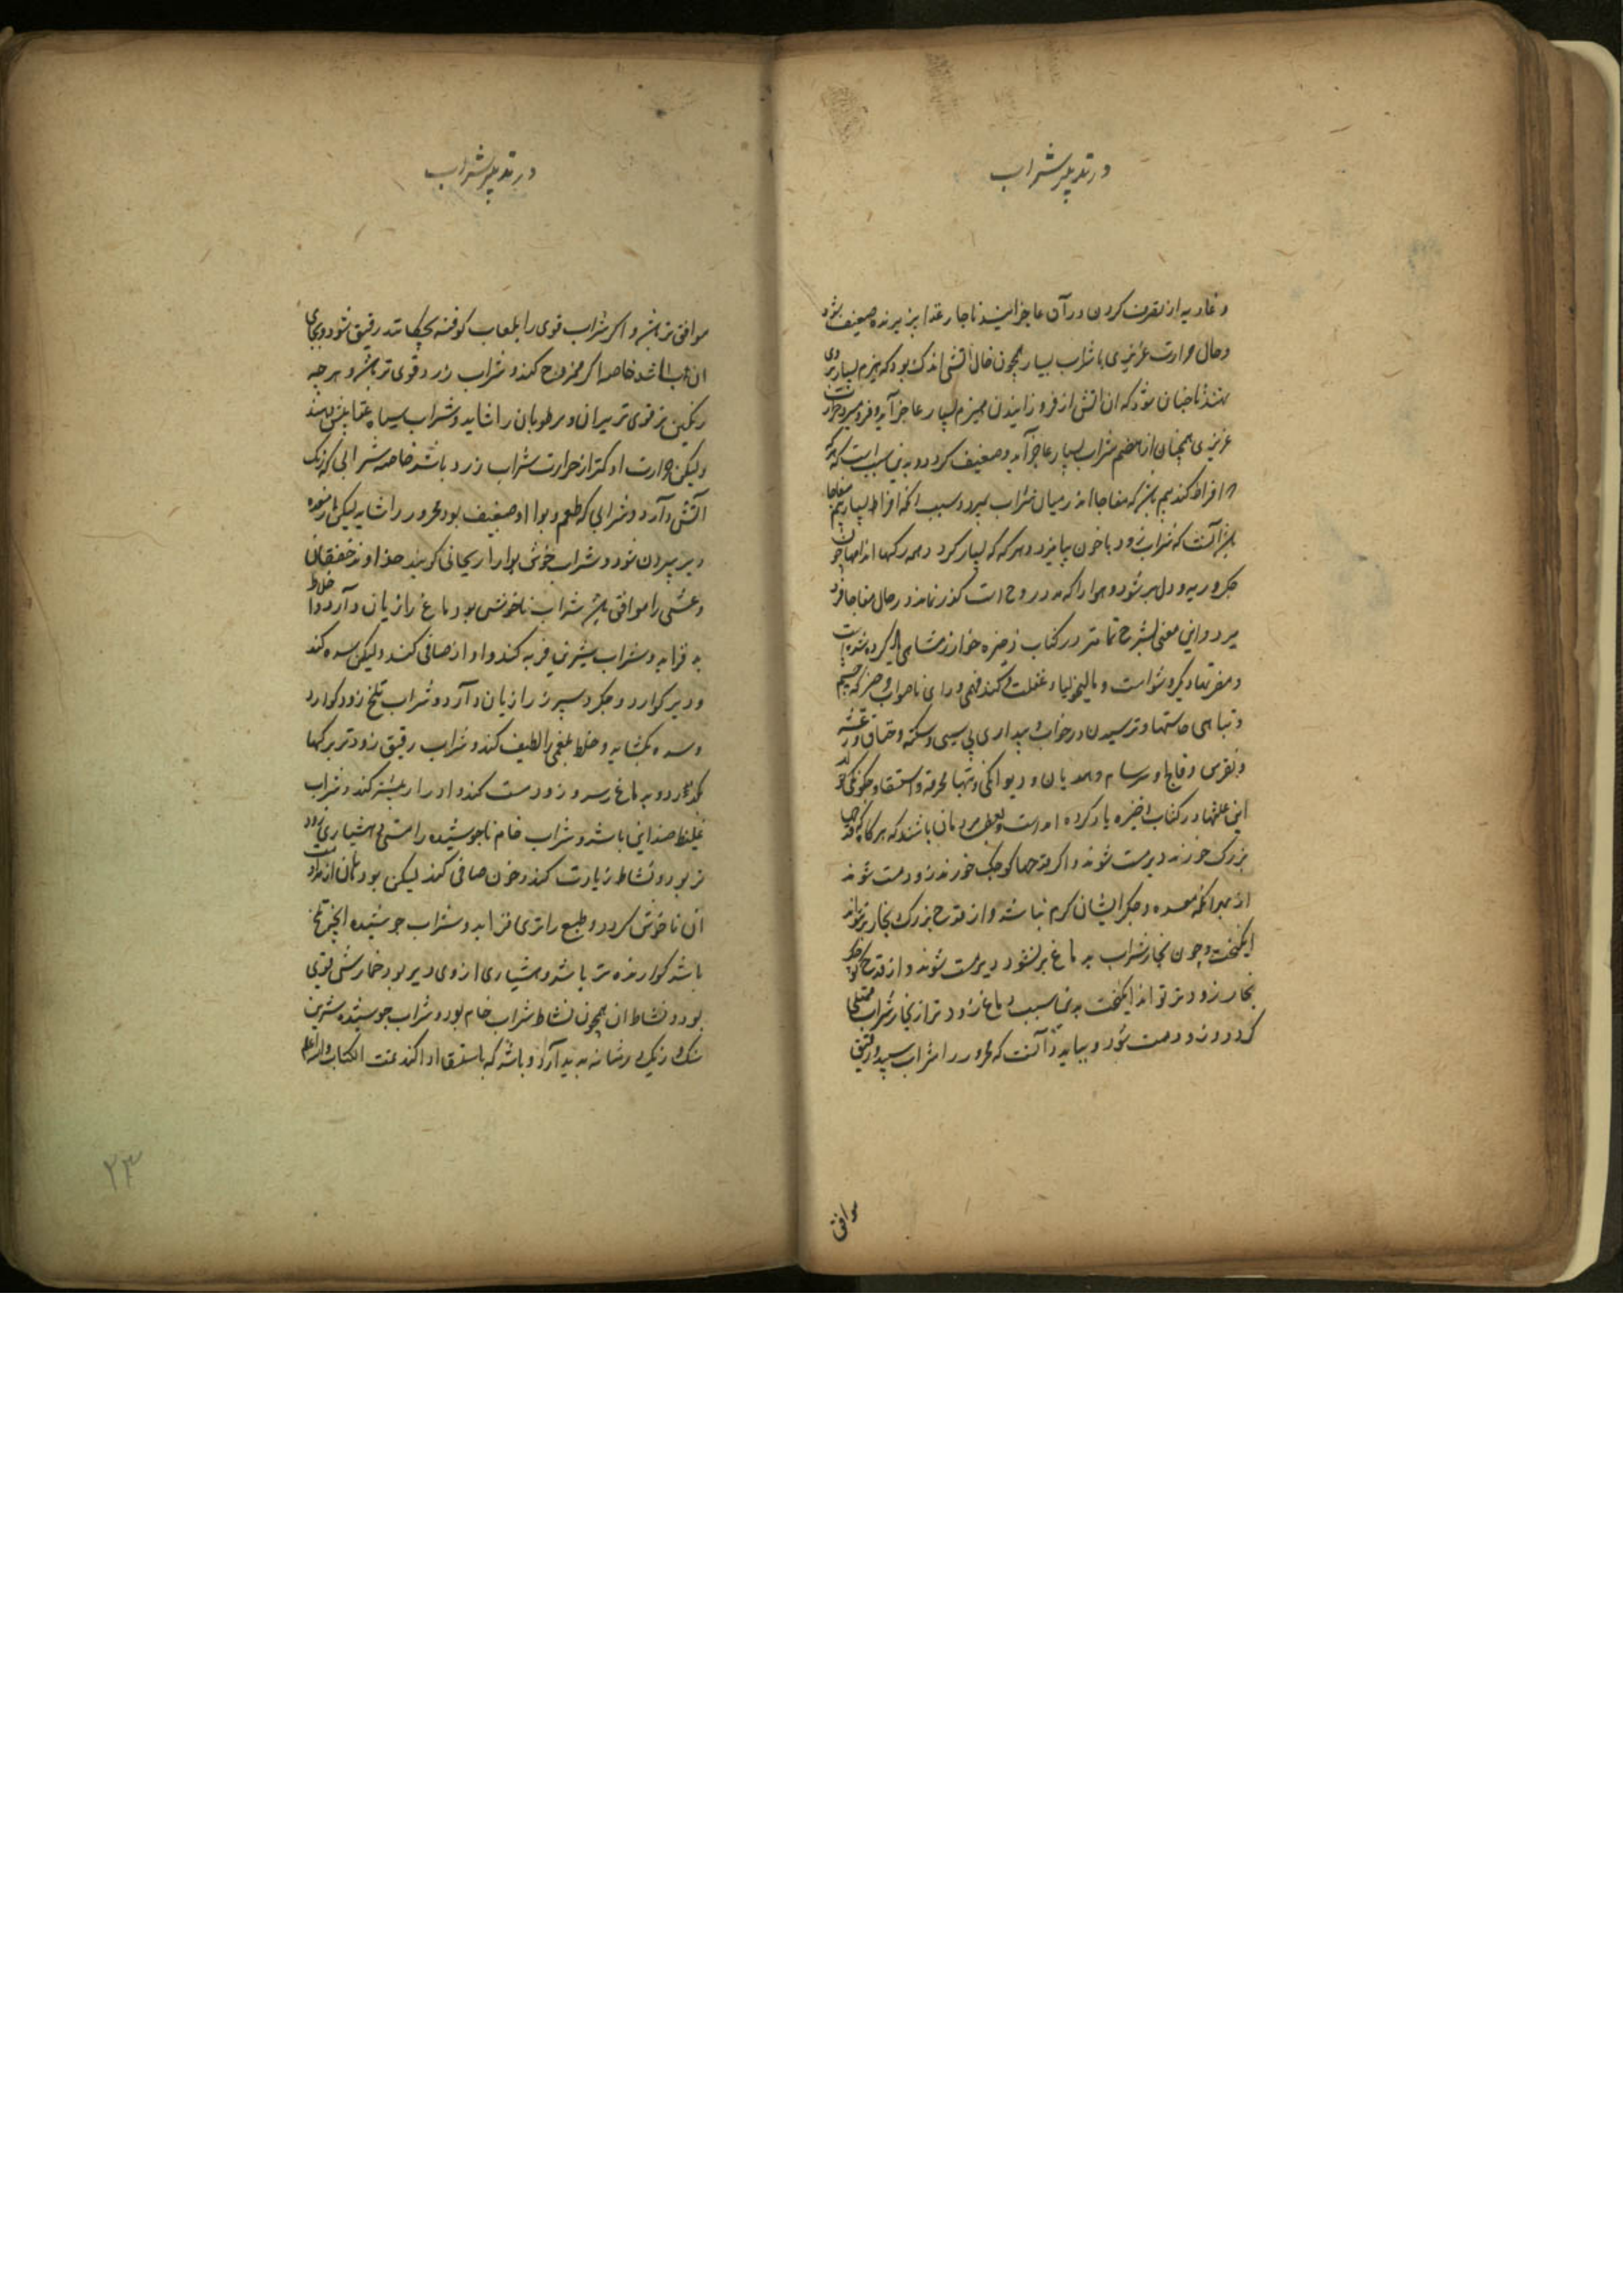 در تدبیر شراب
و غاذیه از تصرف کردن در آن عاجز آیند ناچار غذا پزیرنده ضعیف شود
و حال حرارت غریزی با شراب بسیار همچون حال آتشی اندک بود که هیزم بسیار بروی
نهند تا چنان شود که ان اتش از فروزانیدن هیزم بسیار عاجز آید و فرو میرد حرارت
غریزی همچنان از هضم شراب بسیار عاجز آید و ضعیف کردد و بدین سبب است که هرکه
افراط کند بیم باشد که مفاجا اندر میان شراب بمیرد و سبب انکه افراط بسیار بیم مفاجا
باشد آنست که شراب زود با خون بیامیزد و هرکه که بسیار کرد و همه رکها اندامها چون
جکر و ریه و دل پر شود و هوا را که مدد روح است کذر نماند در حال مفاجا فرو
میرد و این معنی بشرح تمامتر در کتاب ذخیره خوارزمشاهی یاد کرده شده است
و مضرتها دیکر و شوا است و مالیخولیا و غفلت و کند فهمی و رای ناصواب و
و تباهی حاستها و ترسیدن در خواب و بیداری بی سببی و سکته و خناق و رعشه
و نقرس و فالج و سرسام و هذیان و دیوانکی و تبها محرقه و استسقا و چکونکی تولد
این علتها در کتاب ذخیره یاد کرده امده است و بعضی مردمان باشند که هرکاه که قدحها
بزرک خورند دیر مست شوند و اکر قدحها کوچک خورند زود مست شوند
از بهر انکه معده و جکر ایشان کرم نباشد و از قدح بزرک بخار نتواند
ایکخت و چون بخار شراب به ماغ بر نشود دیر مست شوند و از قدح کوچک
بخار زودتر تواند ایکخت بدین سبب دماغ زودتر از بخار شراب ممتلی
کردد و زود مست شود و بباید دانست که محرور را شراب سپید و رقیق
موافق
در تدبیر شراب
موافق تر باشد و اکر شراب قوی را بلعاب کوفته بچکانند رقیق شود و بجای
ان شراب باشد خاصه اکر ممزوج کنند و شراب زرد قوی تر باشد و هرچه
رنکین تر قوی تر پیران و مرطوبان را شاید و شراب سیاه غذا بیش دهند
ولیکن حرارت او کمتر از حرارت شراب زرد باشد خاصه شرابی که زنک
آتش دارد و شرابی که طعم و بوا او ضعیف بود محرور را شاید لیکن از معده
دیر بیرون شود و شراب خوش بوا را ریحانی کویند خداوند خفقان
و غشی را موافق باشد شراب ناخوش بو دماغ را زیان دارد و اخلاط
بد فزاید و شراب شیرین فربه کند و اواز صافی کند ولیکن سده کند
و دیر کوارد و جکر و سپرز را زیان دارد و شراب تلخ زود کوارد
و سده بکشاید و خلط بلغمی را لطیف کند و شراب رقیق زودتر برکها
بکذرد و به ماغ رسد و زود مست کند و ادرار بیشتر کند و شراب
غلیظ ضد این باشد و شراب خام ناجوشیده را مستی و هشیاری زود
تر بود و نشاط زیادت کند و خون صافی کند لیکن بود
ان ناخوش کردد و طبع را تری فزاید و شراب جوشیده انچه تلخ
باشد کوارنده تر باشد و هشیاری از وی دیر بود خمارش قوی
بود و نشاط ان همچون نشاط شراب خام بود و شراب جوشیده شیرین
سنک و ریک در مثانه پدید آرد و باشد که باستسقا ادا کند تمت الکتاب والله اعلم
۲۳